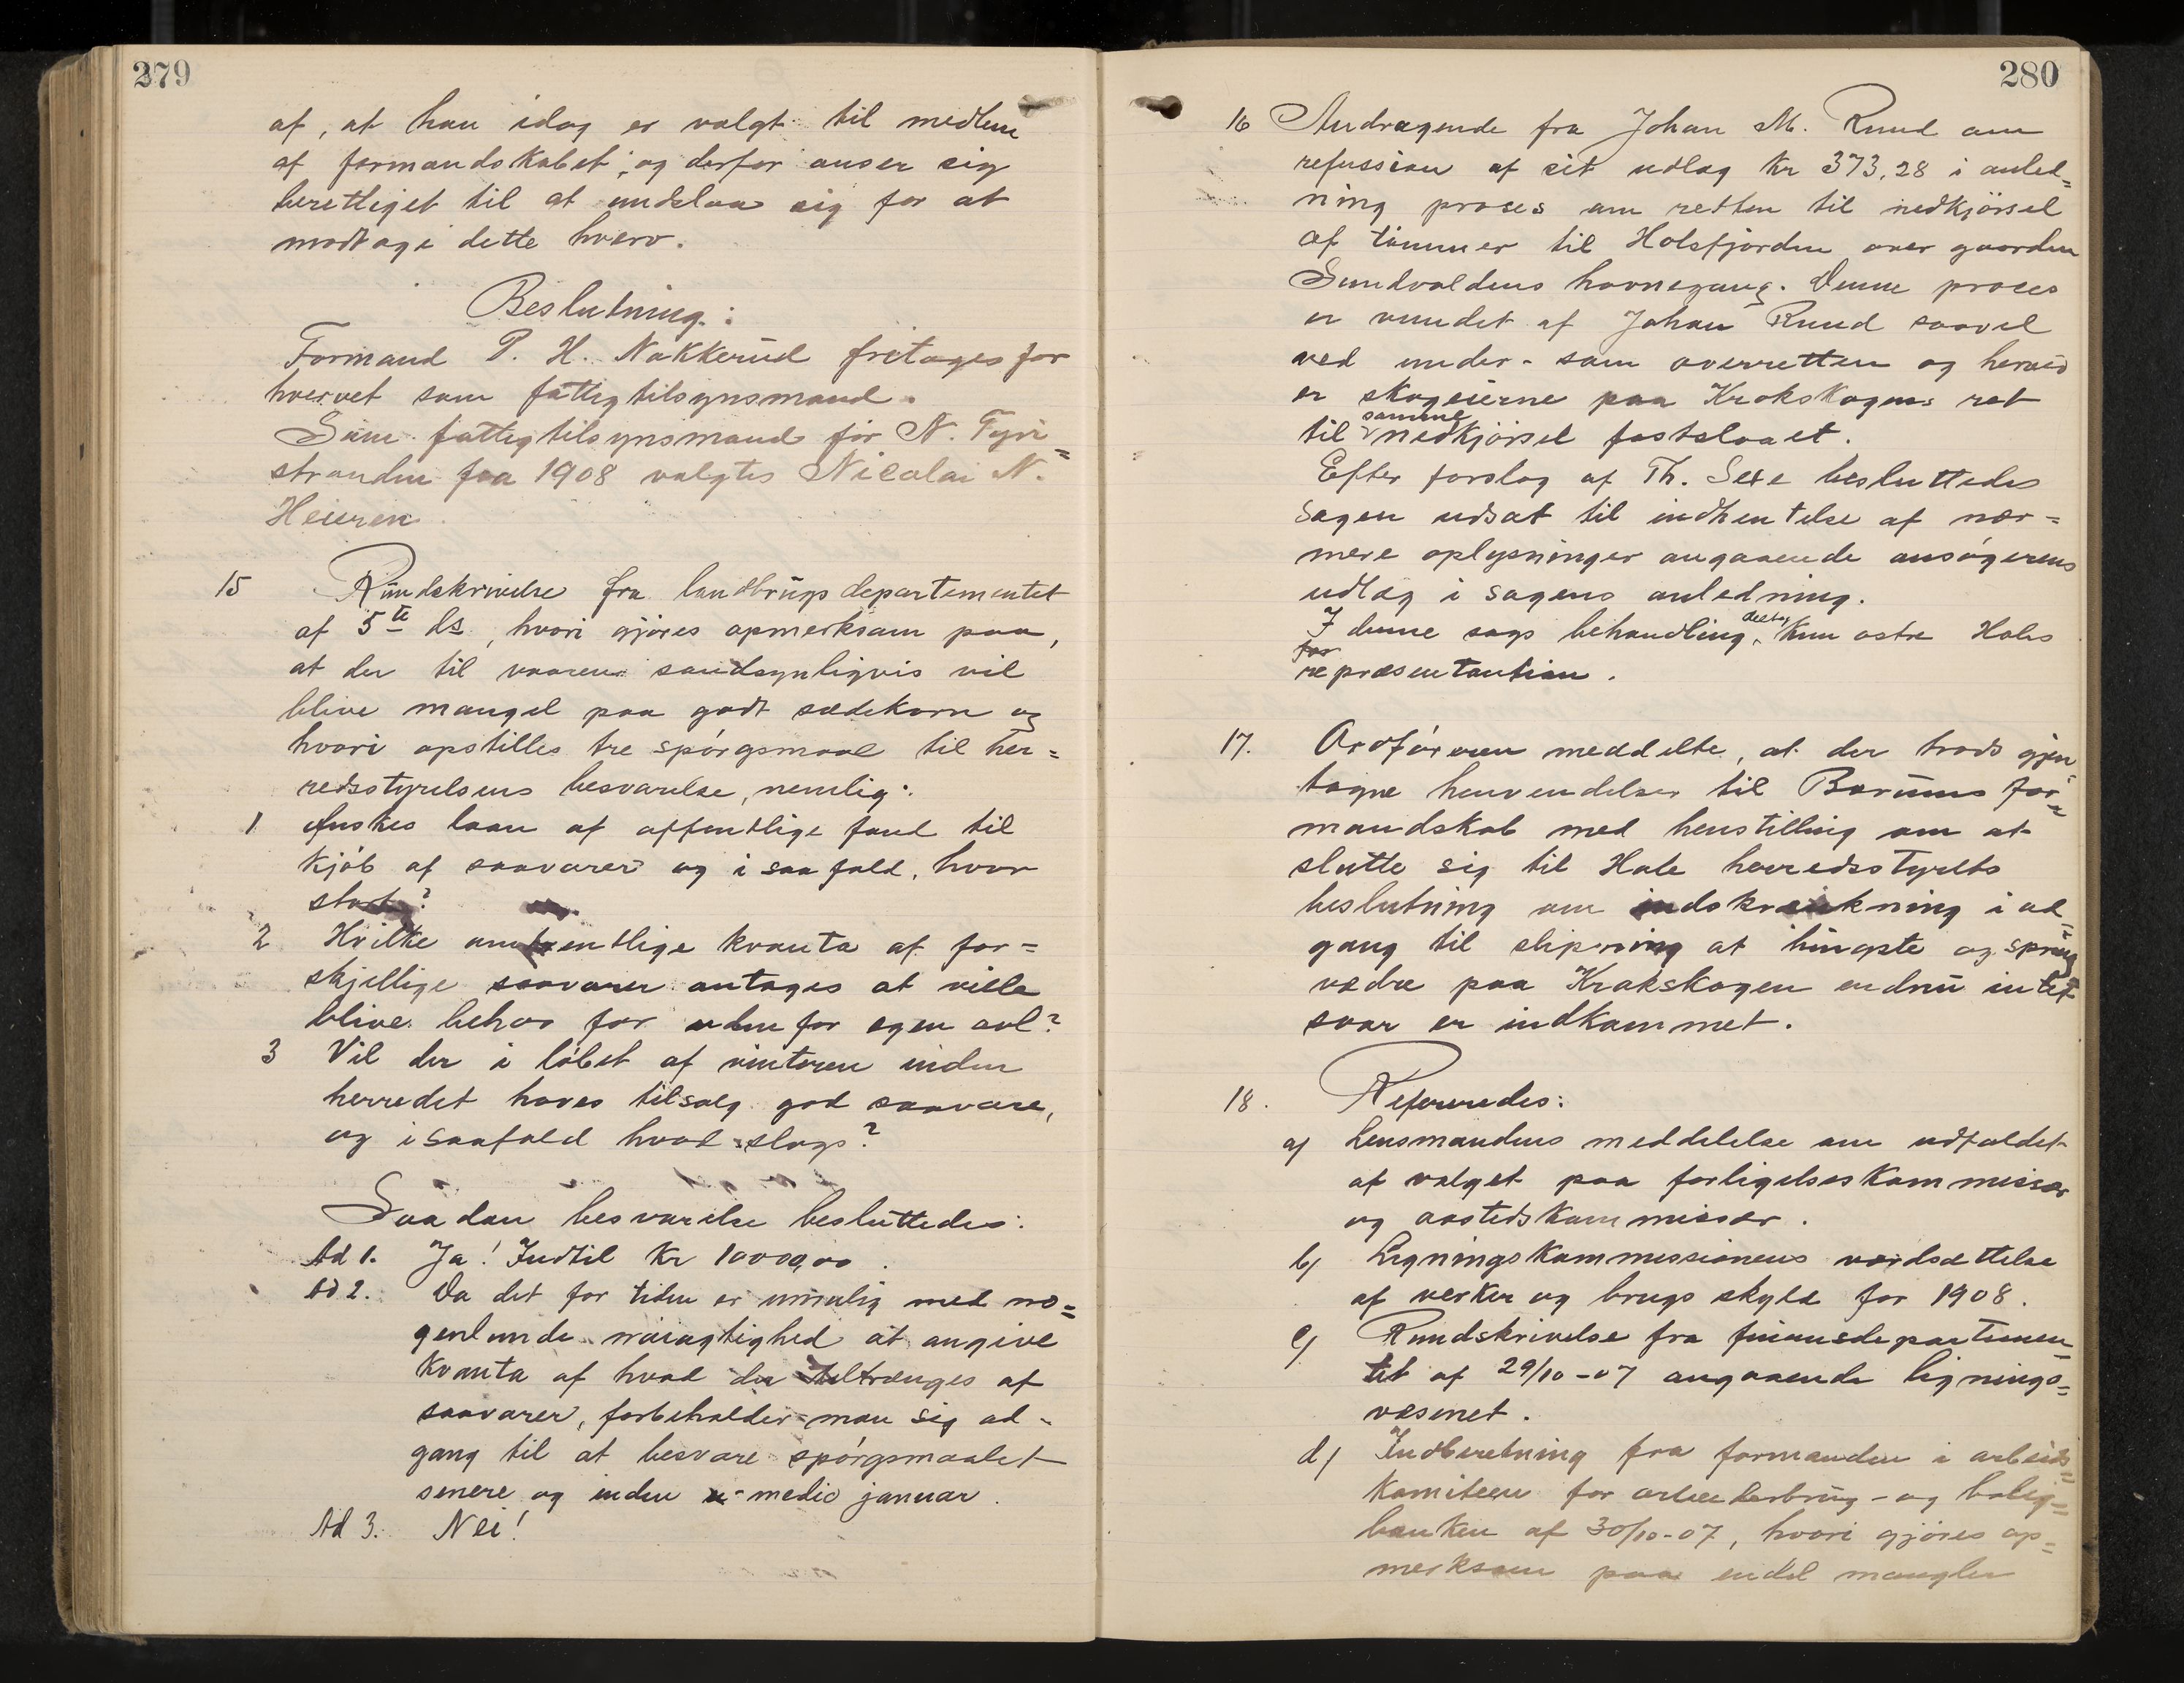 279
af, at han idag er valgt til medlem
af formandskabet, og derfor anser sig
berettiget til at undslaa sig for at
modtage dette hverv.
Beslutning:
Formand P. H. Nakkerud fritages for
hvervet som fattigtilsynsmand.
Som fattigtilsynsmand for N. Tyri=
stranden fra 1908 valgtes Nicolai N.
Heieren.
15 Rundskrivelse fra landbrugsdepartementet
af 5te ds, hvori gjøres opmerksam paa,
at der til vaaren sandsynligvis vil
blive mangel paa godt sædekorn og
hvori opstilles tre spørgsmaal til her=
redsstyrelsens besvarelse, nemlig:
1 Ønskes laan af offentlige fond til
kjøb af saavarer og i saa fald, hvor
stort?
2 Hvilke omtrentlige kvanta af for=
skjellige saavarer antages at ville
blive behov for udenfor egen avl?
3 Vil der i løbet af vinteren inden
herredet haves tilsalg god saavare,
og isaafald hvad slags?
Saadan besvarelse besluttedes:
Ad 1. Ja! Indtil Kr 10000,00.
Ad 2. Da det for tiden er umulig med no=
genlunde nøiagtighed at angive
kvanta af hvad der tiltrænges af
saavarer, forbeholder man sig ad-
gang til at besvare spørgsmaalet
senere og inden medio januar.
Ad 3. Nei!
280
16 Andragende fra Johan M. Ruud om
refussion af sit udlag kr 373,28 i anled=
ning proces om retten til nedkjørsel
af tømmer til Holsfjorden over gaarden
Sundvoldens havnegang. Denne proces
er vundet af Johan Ruud saavel
ved under- som overretten og herved
er skogeierne paa Krokskogens ret
til samme nedkjørsel fastslaaet.
Efter forslag af Th. Sexe besluttedes
sagen udsat til indhentelse af nær=
mere oplysninger angaaende ansøgerens
udlæg i sagens anledning.
I denne sags behandling deltog kun østre Hols
for
repræsentantion.
17. Ordføreren meddelte, at der trods gjen
tagne henvendelser til Bærums for=
mandskab med henstilling om at
slutte sig til Hole herredsstyrets
beslutning om indskrænkning i ad=
gang til slipning af hingste og spræng
vædre paa Krokskogen endnu intet
svar er indkommet.
18. Refereredes:
a) Lensmandens meddelelse om udfaldet
af valget paa forligelseskommissær
og aastedskommissær.
b) Ligningskommissionens værdsættelse
af verker og brugs skyld for 1908.
c) Rundskrivelse fra finansdepartemen=
tet af 29/10-07 angaaende lignings=
væsenet.
d) Indberetning fra formanden i arbeids=
komiteen for arbeiderbrug- og bolig=
banken af 30/10-07, hvori gjøres op=
merksom paa endel mangler